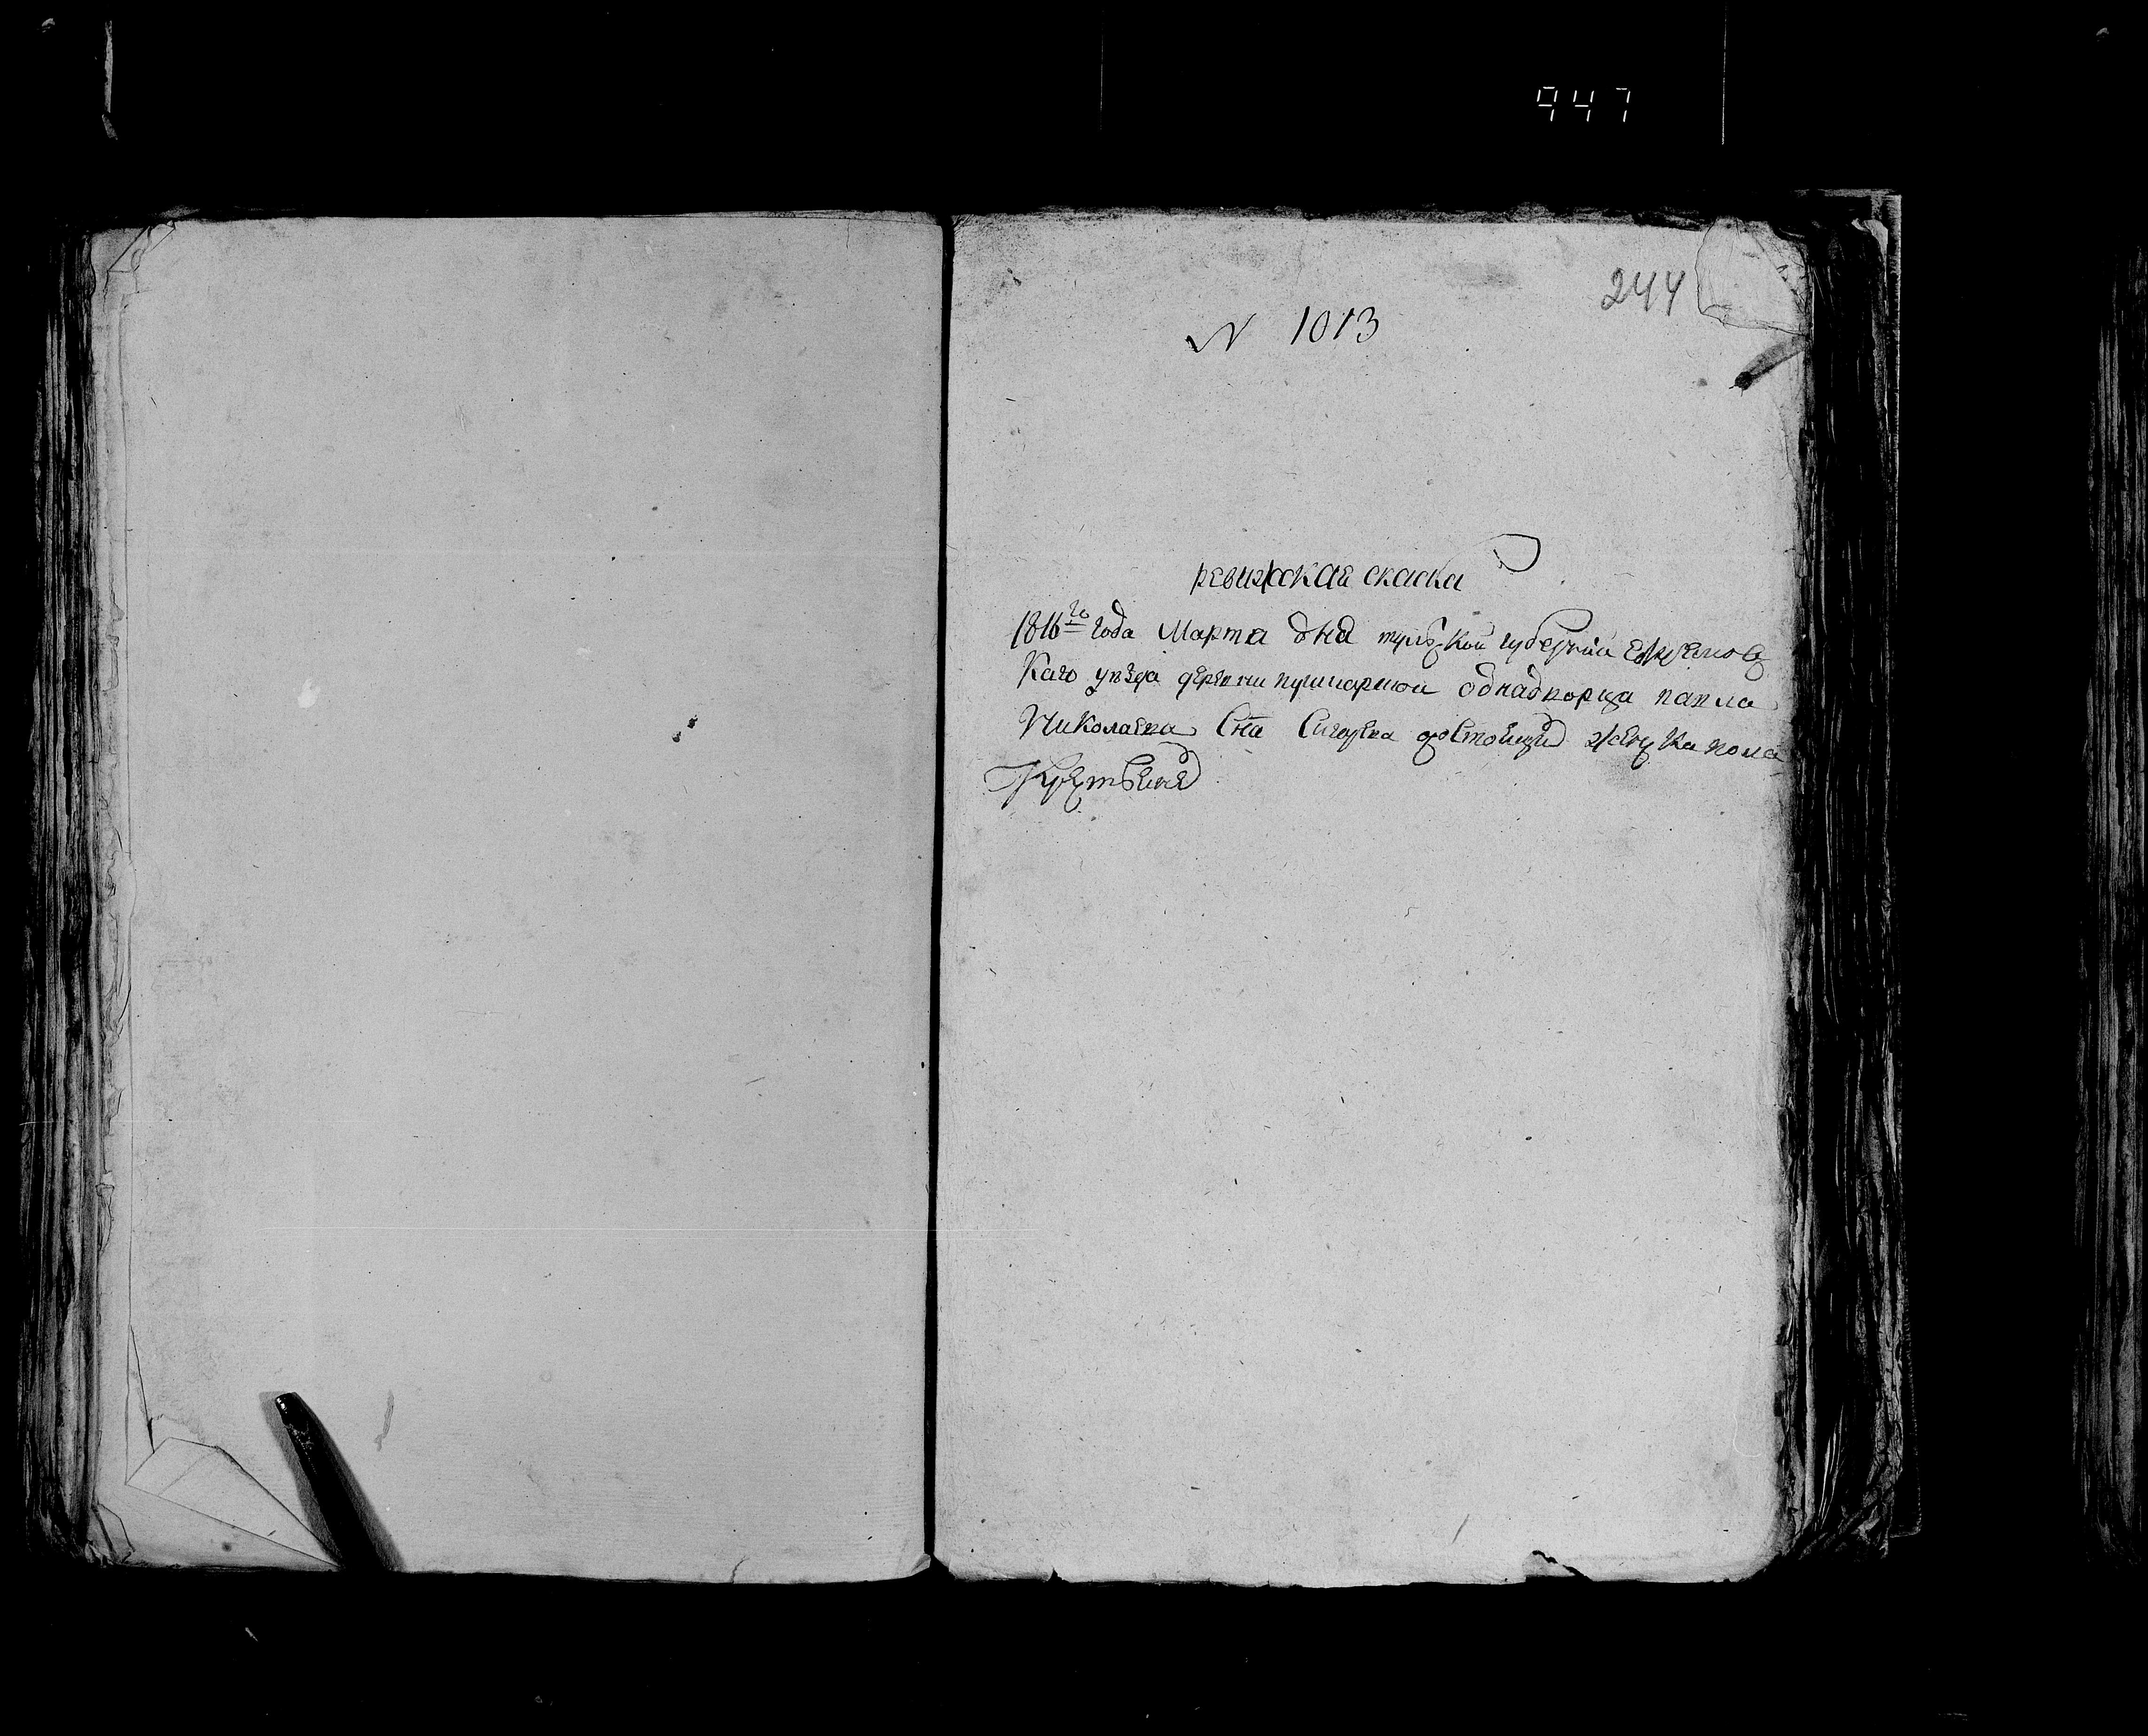 947
244
N 1013
ревижская скаска
1816го года Марта дня тульской губернии ефремовс
каго уезда деревни пушкарной однадворца павла
Николаева Сна Сигарева остоящих женска пола
крестьяне